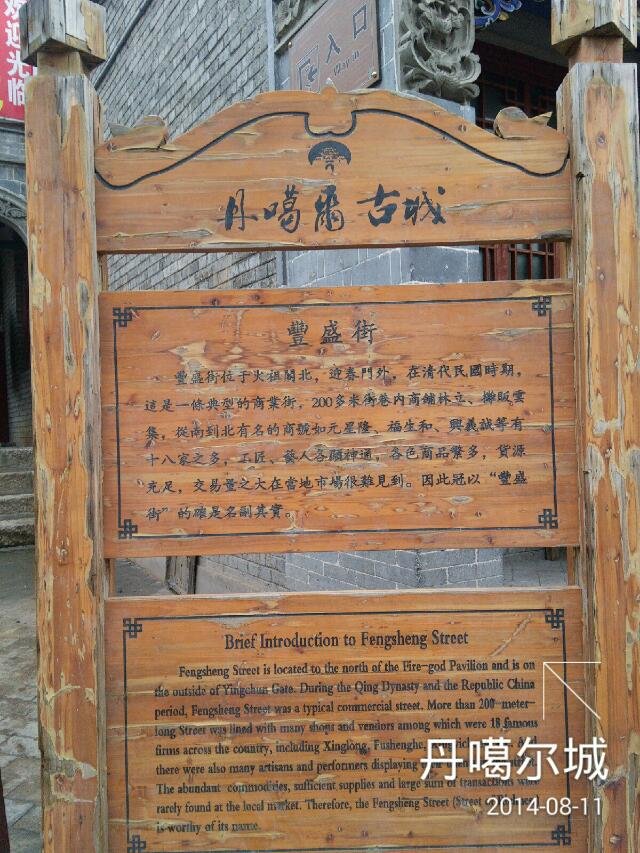 欢迎光临
入口
Way in
丹噶爾古城
豐盛街
豐盛街位于火祖閣北，迎春門外，在清代民國時期，
這是一條典型的商業街，200多米街巷内商鋪林立、攤販雲
集，從南到北有名的商號如元星隆、福生和、興義誠等有
十八家之多，工匠、藝人各顯神通，各色商品繁多，貨源
充足，交易量之大在當地市場很難見到。因此冠以“豐盛
街”的確是名副其實。
Brief Introduction to Fengsheng Street
Fengsheng Street is located to the north of the Fire-god Pavilion and is on
the outside of Yingchun Gate. During the Qing Dynasty and the Republic China
period, Fengsheng Street was a typical commercial street. More than 200-meter-
long Street was lined with many shops and vendors among which were 18 famous
firms across the country, including Xinglong, Fushenghe,
there were also many artisans and performers displaying
The abundant commodities, sufficient supplies and large sum of transactions were
rarely found at the local market. Therefore, the Fengsheng Street (Street of
is worthy of its name.
丹噶尔城
2014-08-11